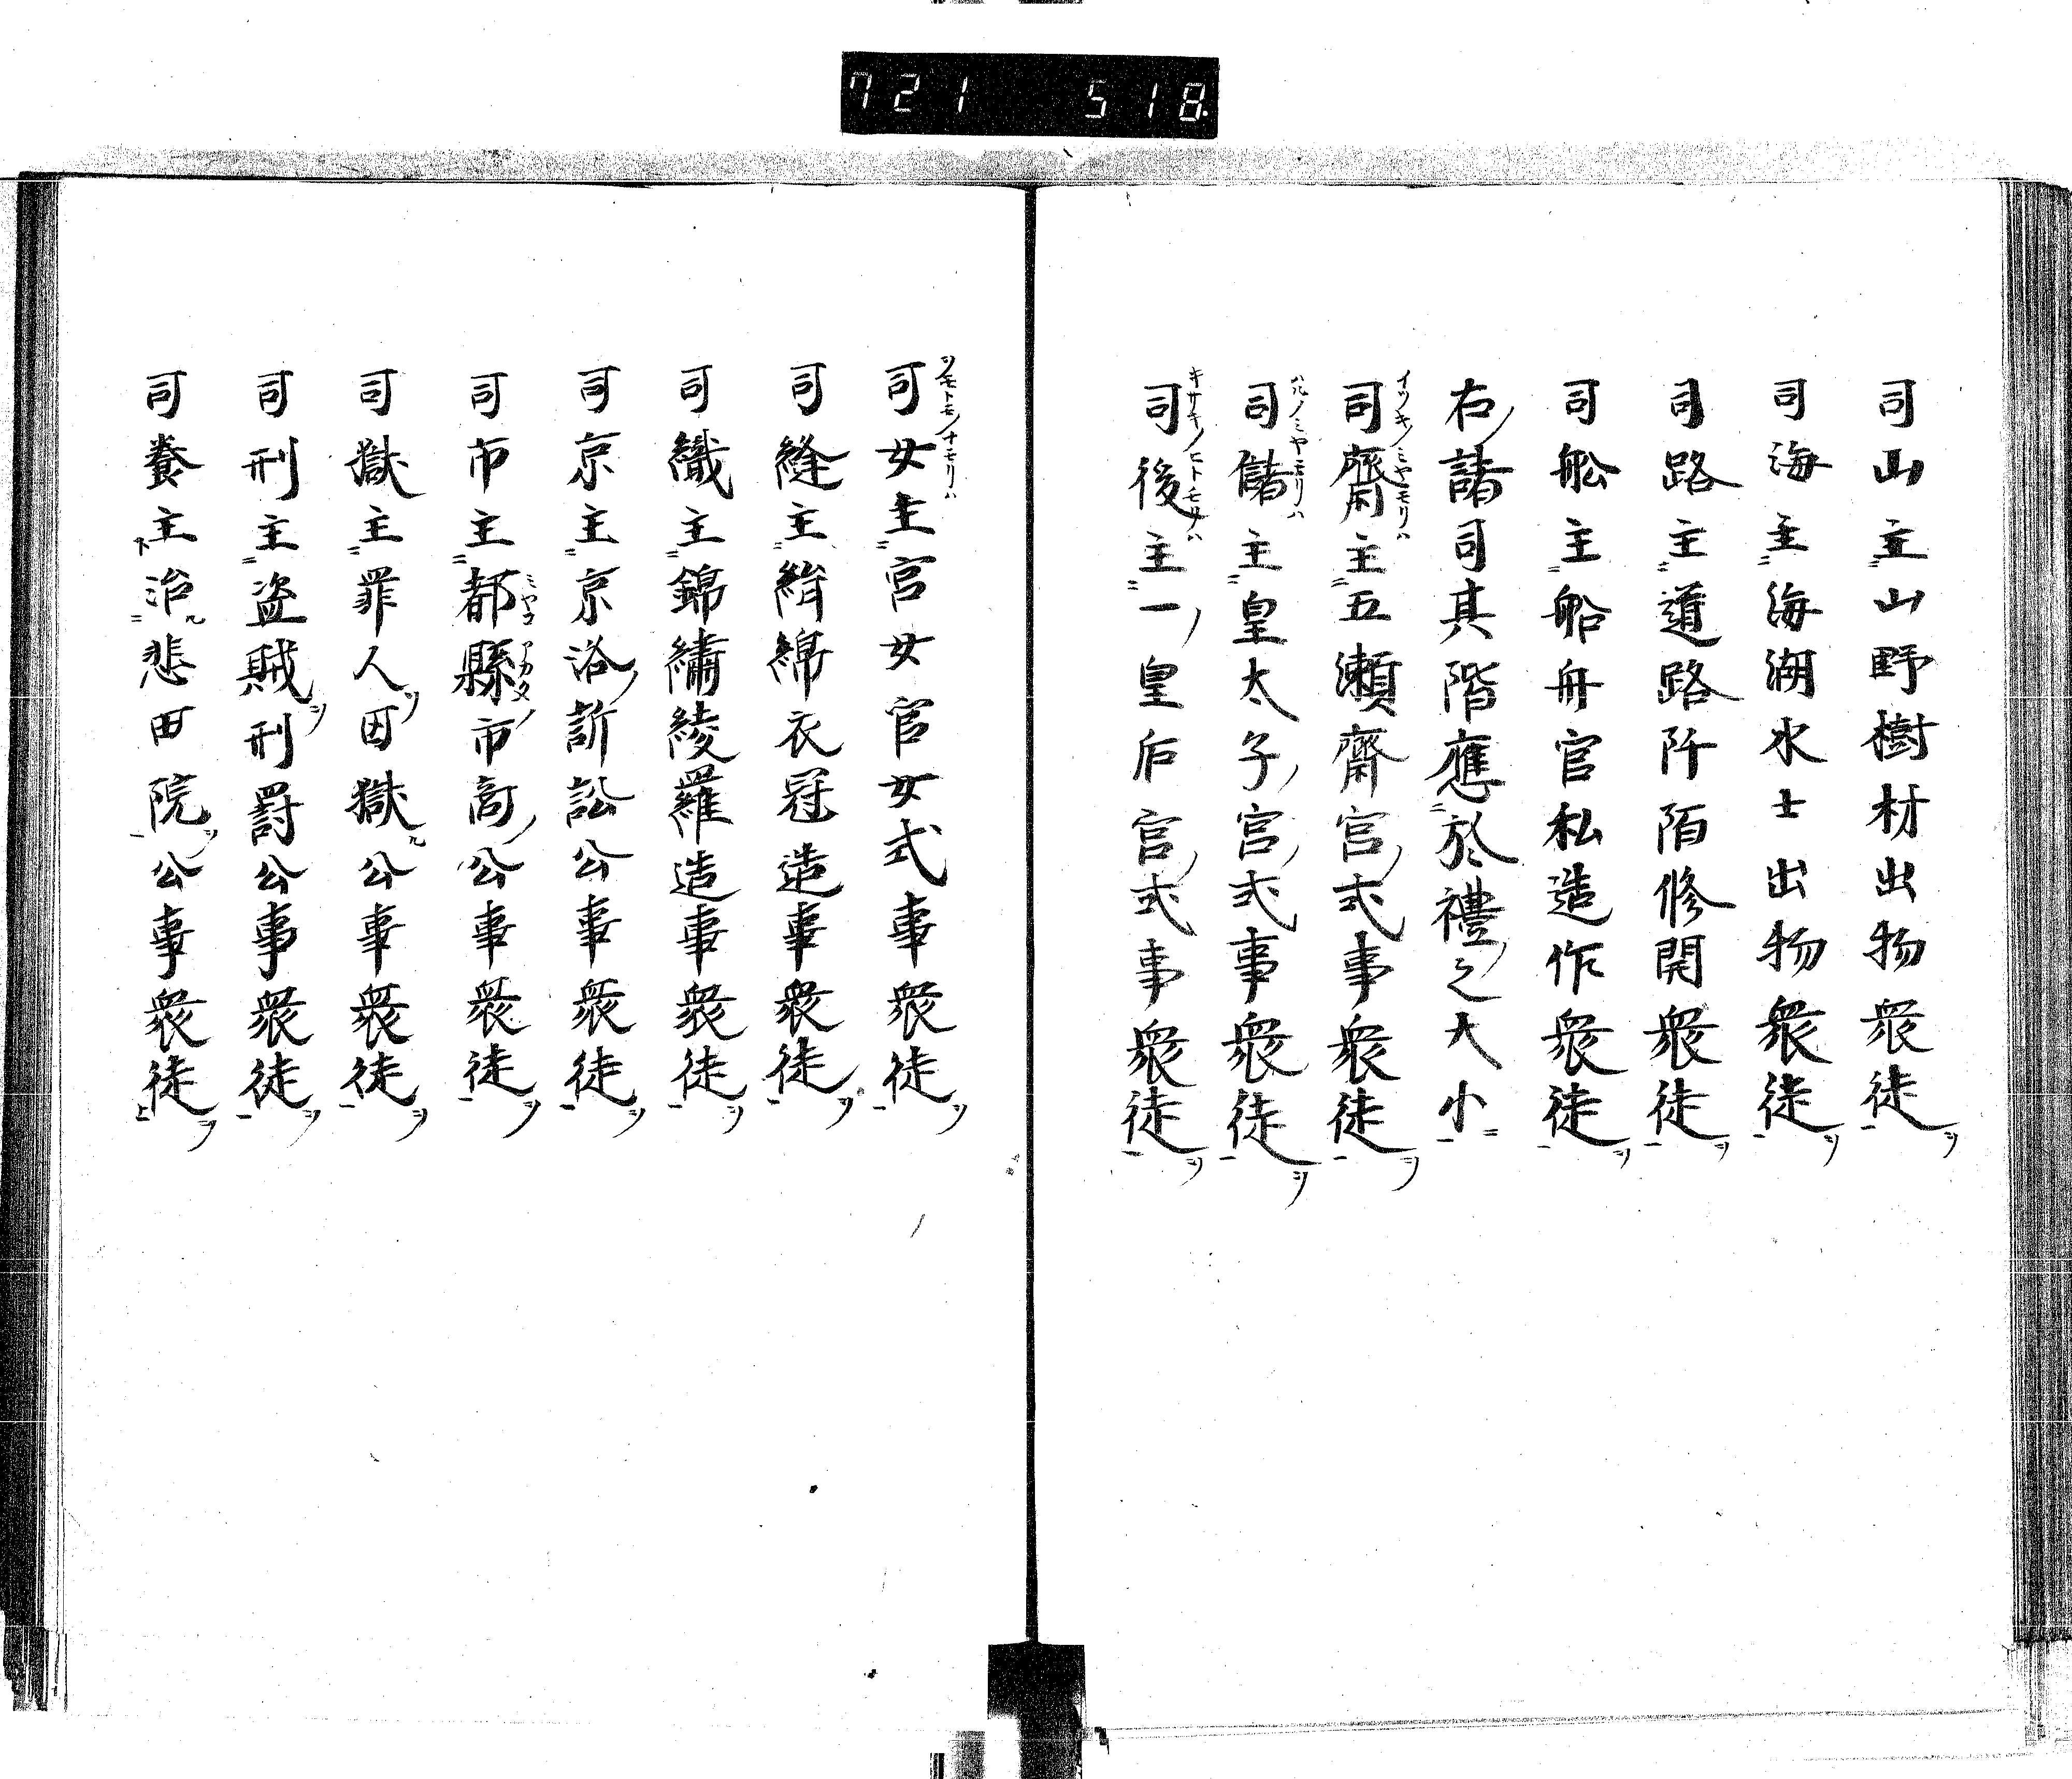 721 518
司山主山野樹材出物衆徒
司海主海湖水土出物衆徒
司路主道路阡陌修開衆徒
司舩主船舟官私造作衆徒
右諸司其階應於禮之大小
司齋主五瀬齋宮式事衆徒
司儲主皇太子宮式事衆徒
司後主一皇后宮式事衆徒
司女主宮女官女式事衆徒
司縫主絹綿衣冠造事衆徒
司織主錦繍綾羅造事衆徒
司京主京洛訴訟公事衆徒
司市主都縣市商公事衆徒
司獄主罪人囚獄公事衆徒
司刑主盗賊刑罸公事衆徒
司養主治悲田院公事衆徒